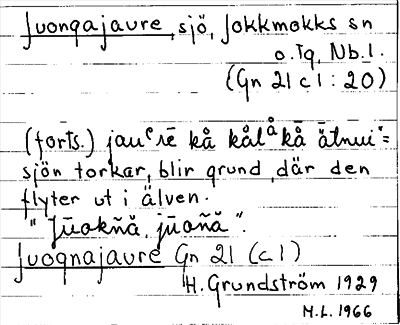 Juonqajaure, sjö, Jokkmokks sn
o. Tq, Nb. l.
(Gn 21 c 1 : 20)
(forts.) jauᵉrē kå kålåkå ätnui"=
sjön torkar, blir grund, där den
flyter ut i älven.
"Jūokñă, jūoñă".
Juoqnajaure Gn 21 (c 1)
H. Grundström 1929
H.L. 1966